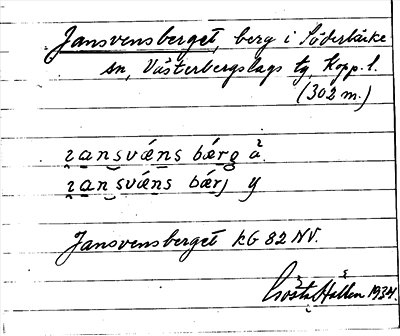 Jansvensberget, berg i Söderbärke
sn, Västerbergslags tg, Kopp. l.
(302 m.)
ɿansvǽns bǽrg ǎ.
ɿansvǽns bǽrj y
Jansvensberget KG 82 NV.
Gösta Hallen 1934.